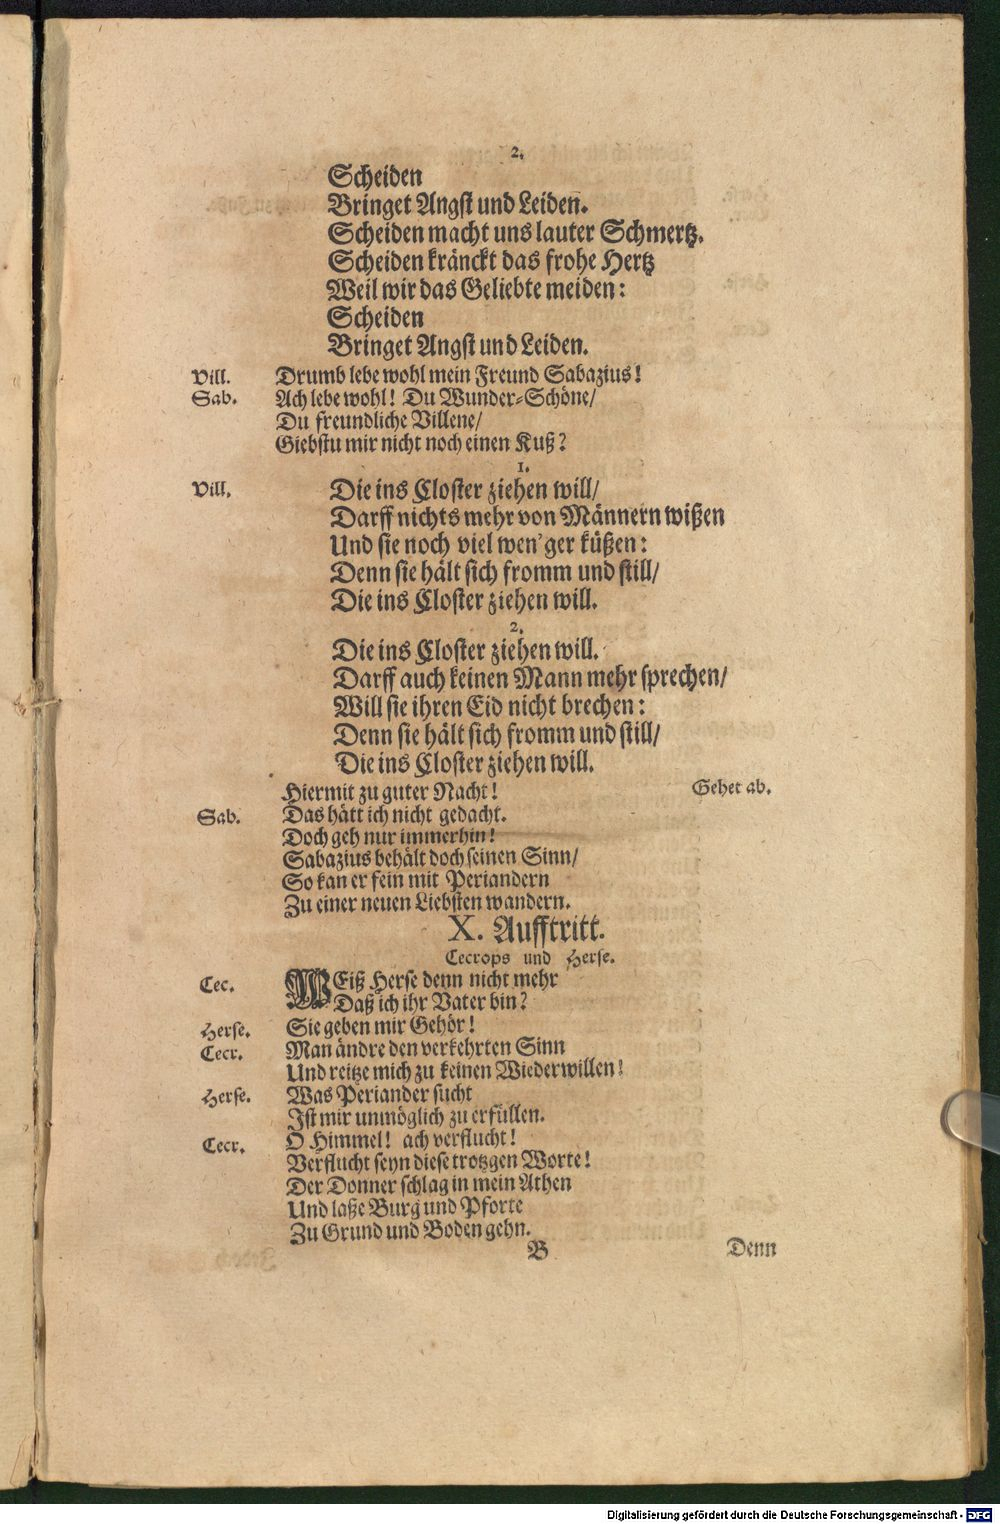 2.
Scheiden
Bringet Angst und Leiden.
Scheiden macht uns lauter Schmertz.
Scheiden kränckt das frohe Hertz
Weil wir das Geliebte meiden:
Scheiden
Bringet Angst und Leiden.
Vill. Drumb lebe wohl mein Freund Sabazius!
Sab. Ach lebe wohl! Du Wunder-Schöne/
Du freundliche Villene/
Giebstu mir nicht noch einen Kuß?
1.
Vill. Die ins Closter ziehen will/
Darff nichts mehr von Männern wißen
Und sie noch viel wen'ger küßen:
Denn sie hält sich fromm und still/
Die ins Closter ziehen will.
2.
Die ins Closter ziehen will.
Darff auch keinen Mann mehr sprechen/
Will sie ihren Eid nicht brechen:
Denn sie hält sich fromm und still/
Die ins Closter ziehen will.
Hiermit zu guter Nacht! Gehet ab.
Sab. Das hätt ich nicht gedacht.
Doch geh nur immerhin!
Sabazius behält doch seinen Sinn/
So kan er fein mit Periandern
Zu einer neuen Liebsten wandern.
X. Aufftritt.
Cecrops und Herse.
Cec. WEiß Herse denn nicht mehr
Daß ich ihr Vater bin?
Herse. Sie geben mir Gehör!
Cecr. Man ändre den verkehrten Sinn
Und reitze mich zu keinen Wiederwillen!
Herse. Was Periander sucht
Ist mir unmöglich zu erfüllen.
Cecr. O Himmel! ach verflucht!
Verflucht seyn diese trotzgen Worte!
Der Donner schlag in mein Athen
Und laße Burg und Pforte
Zu Grund und Boden gehn.
B Denn
Digitalisierung gefördert durch die Deutsche Forschungsgemeinschaft - DFG